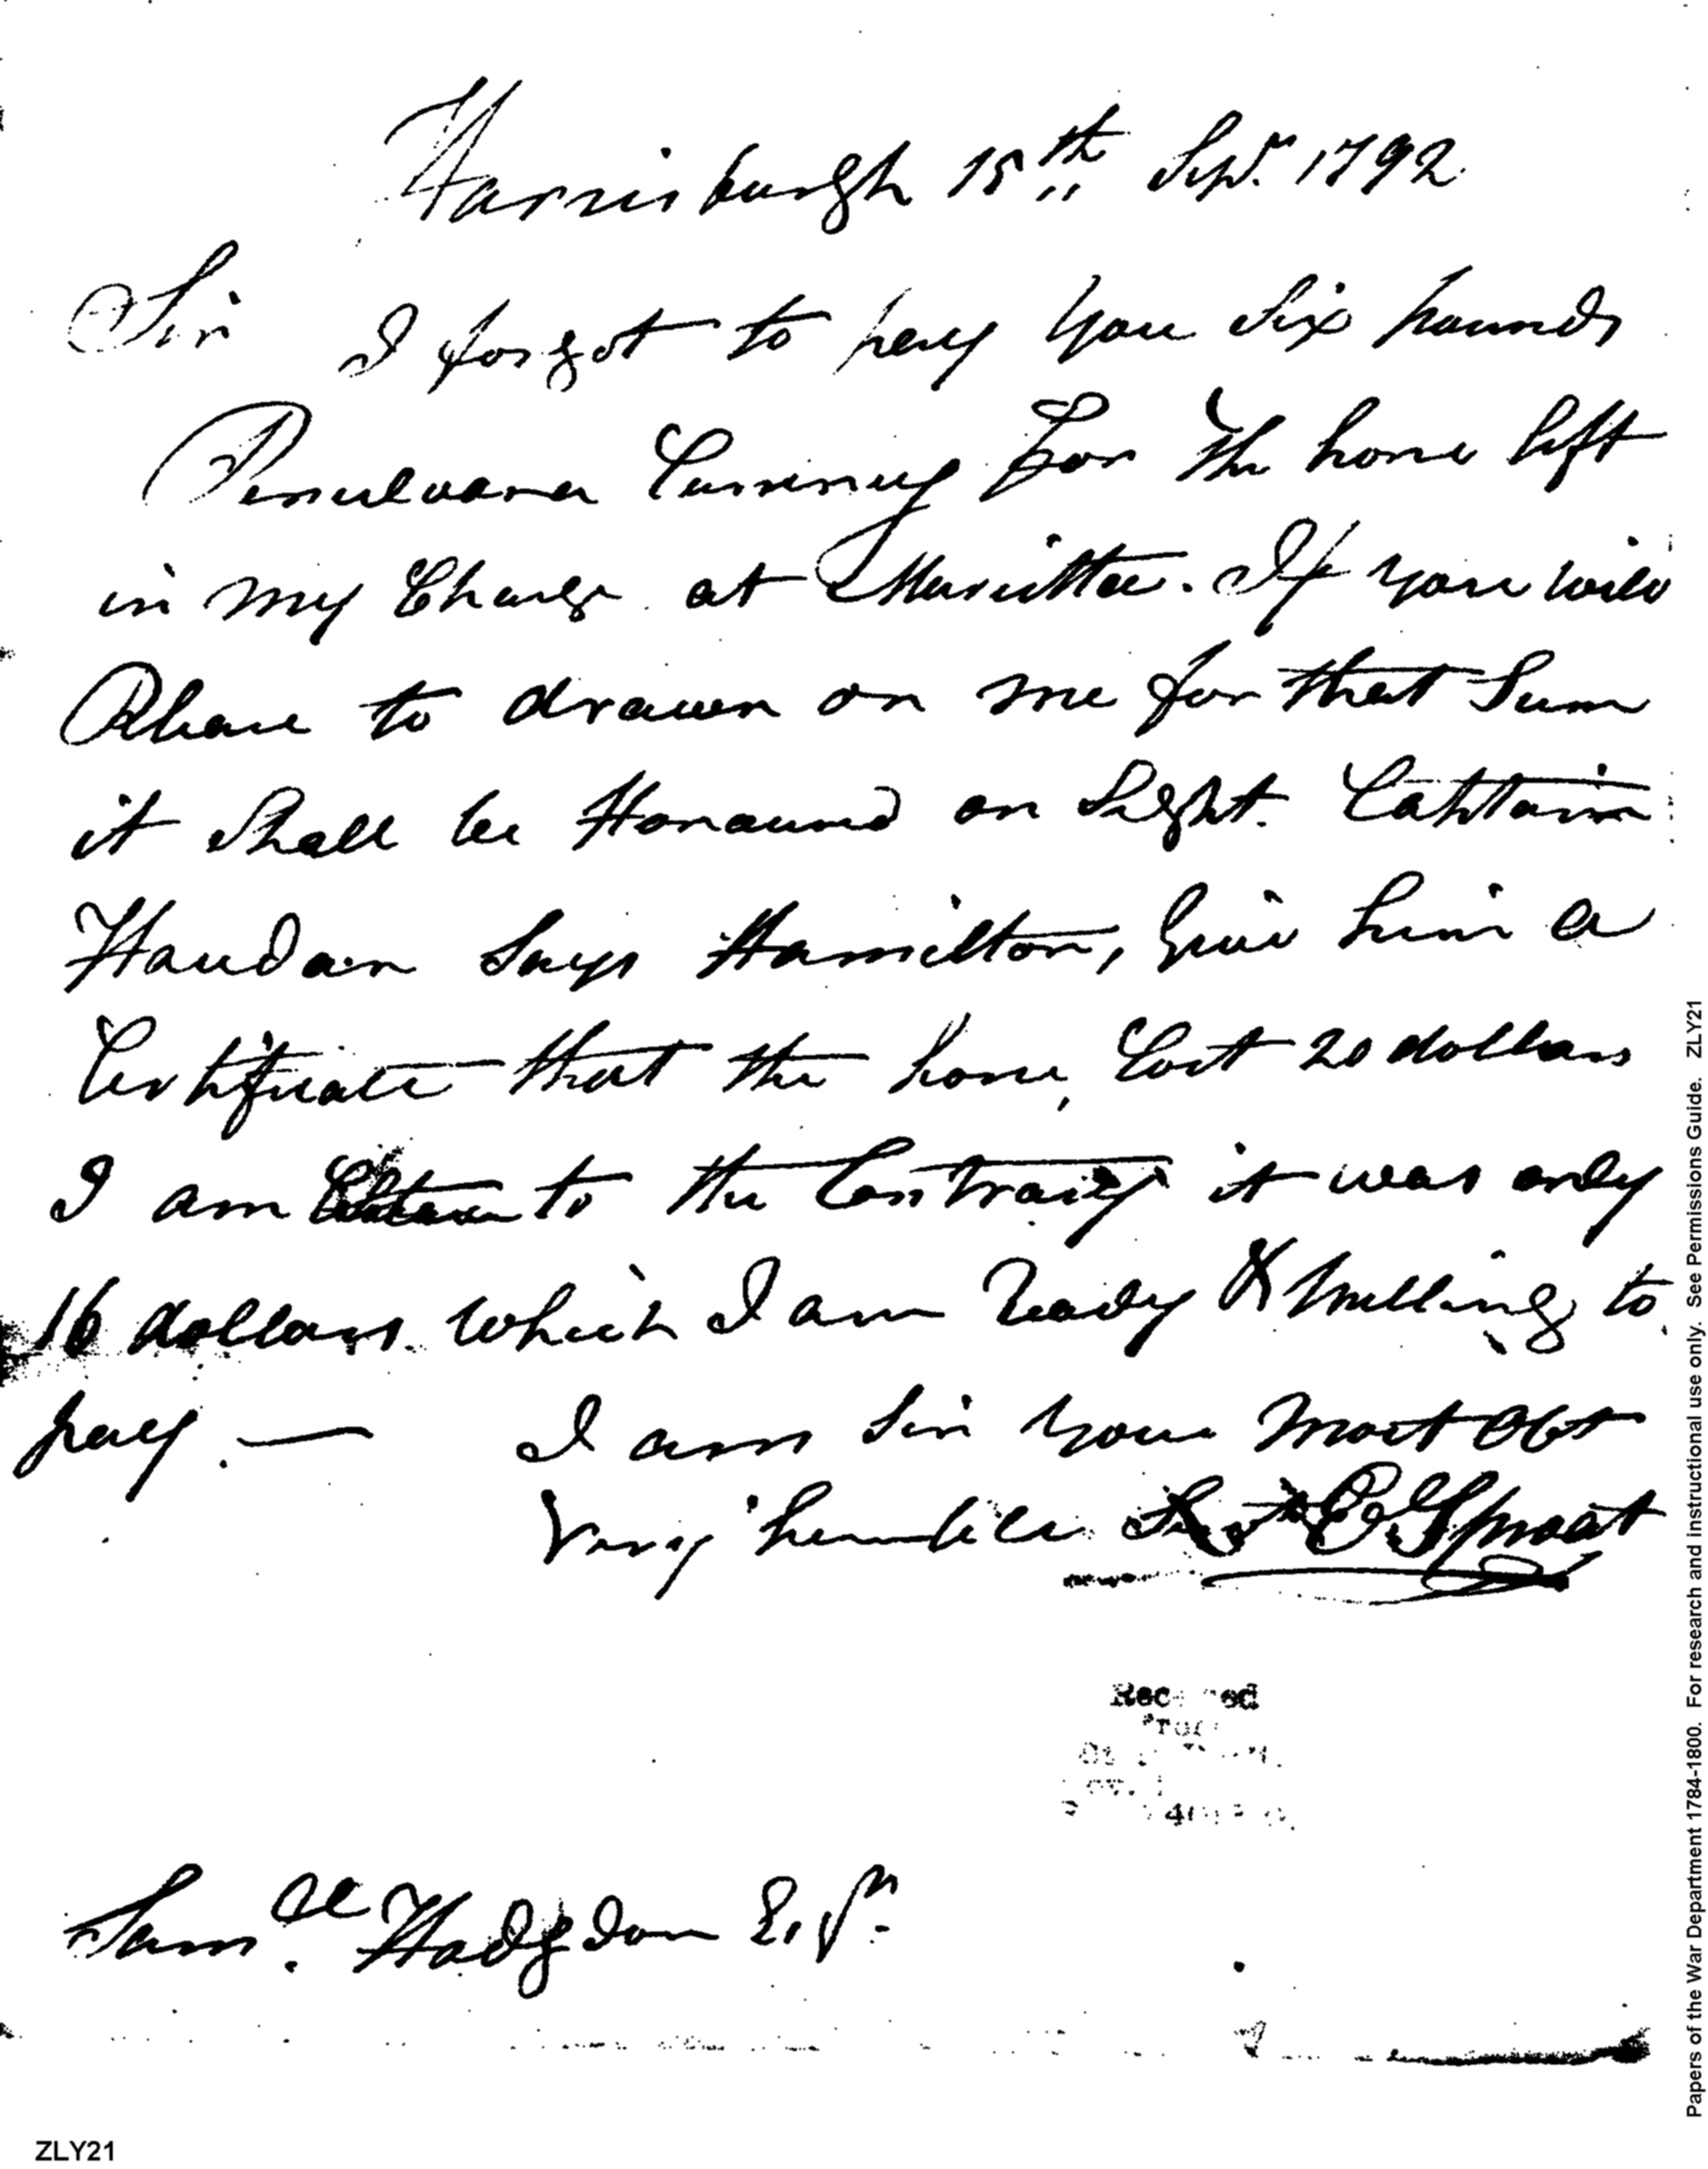 Harrisburgh 15th Sepr. 1792
Sir I forgot to pay you Six pounds
Currency For The horse left
in my Charge at Marietta. If you will
Please to drawn on me for that Sum
it Shall be Honoured on Sight. Capttain
Haudan Says Hamilton, Give him a
Certificate that the horse, Cost 20 dollars
I am to the Contrary it was only
16 dollars which I am Ready & willing to
pay. — I am Sir your most Obt
Very humble Sert E Sproat
Rec ed
Samll. Hodgdon Esqr.
ZLY21
Papers of the War Department 1784-1800. For research and Instructional use only. See Permissions Guide. ZLY21